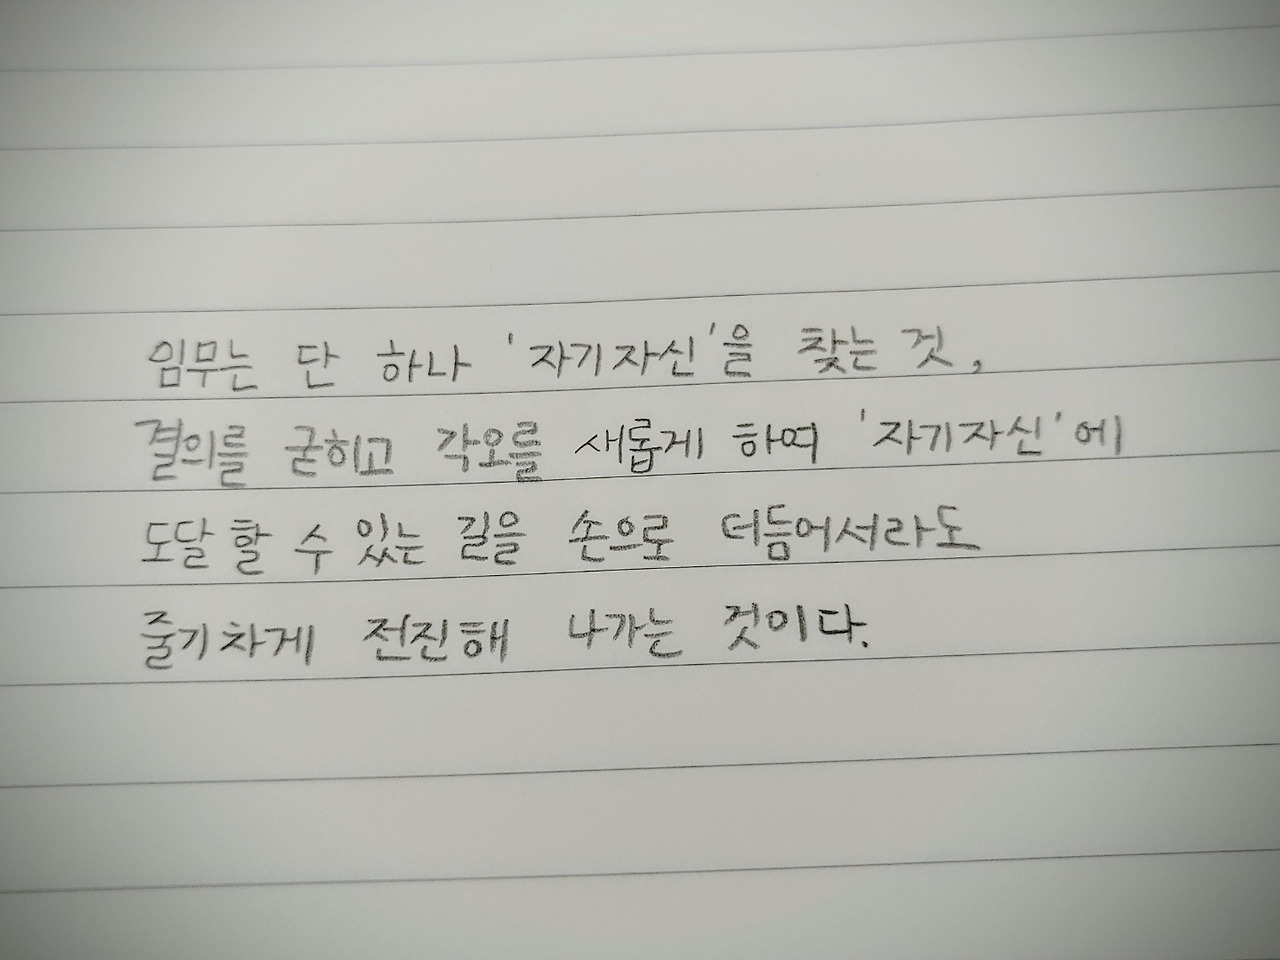 임무는 단 하나 '자기자신'을 찾는 것,
결의를 굳히고 각오를 새롭게 하여 '자기자신'에
도달할 수 있는 길을 손으로 더듬어서라도
줄기차게 전진해 나가는 것이다.